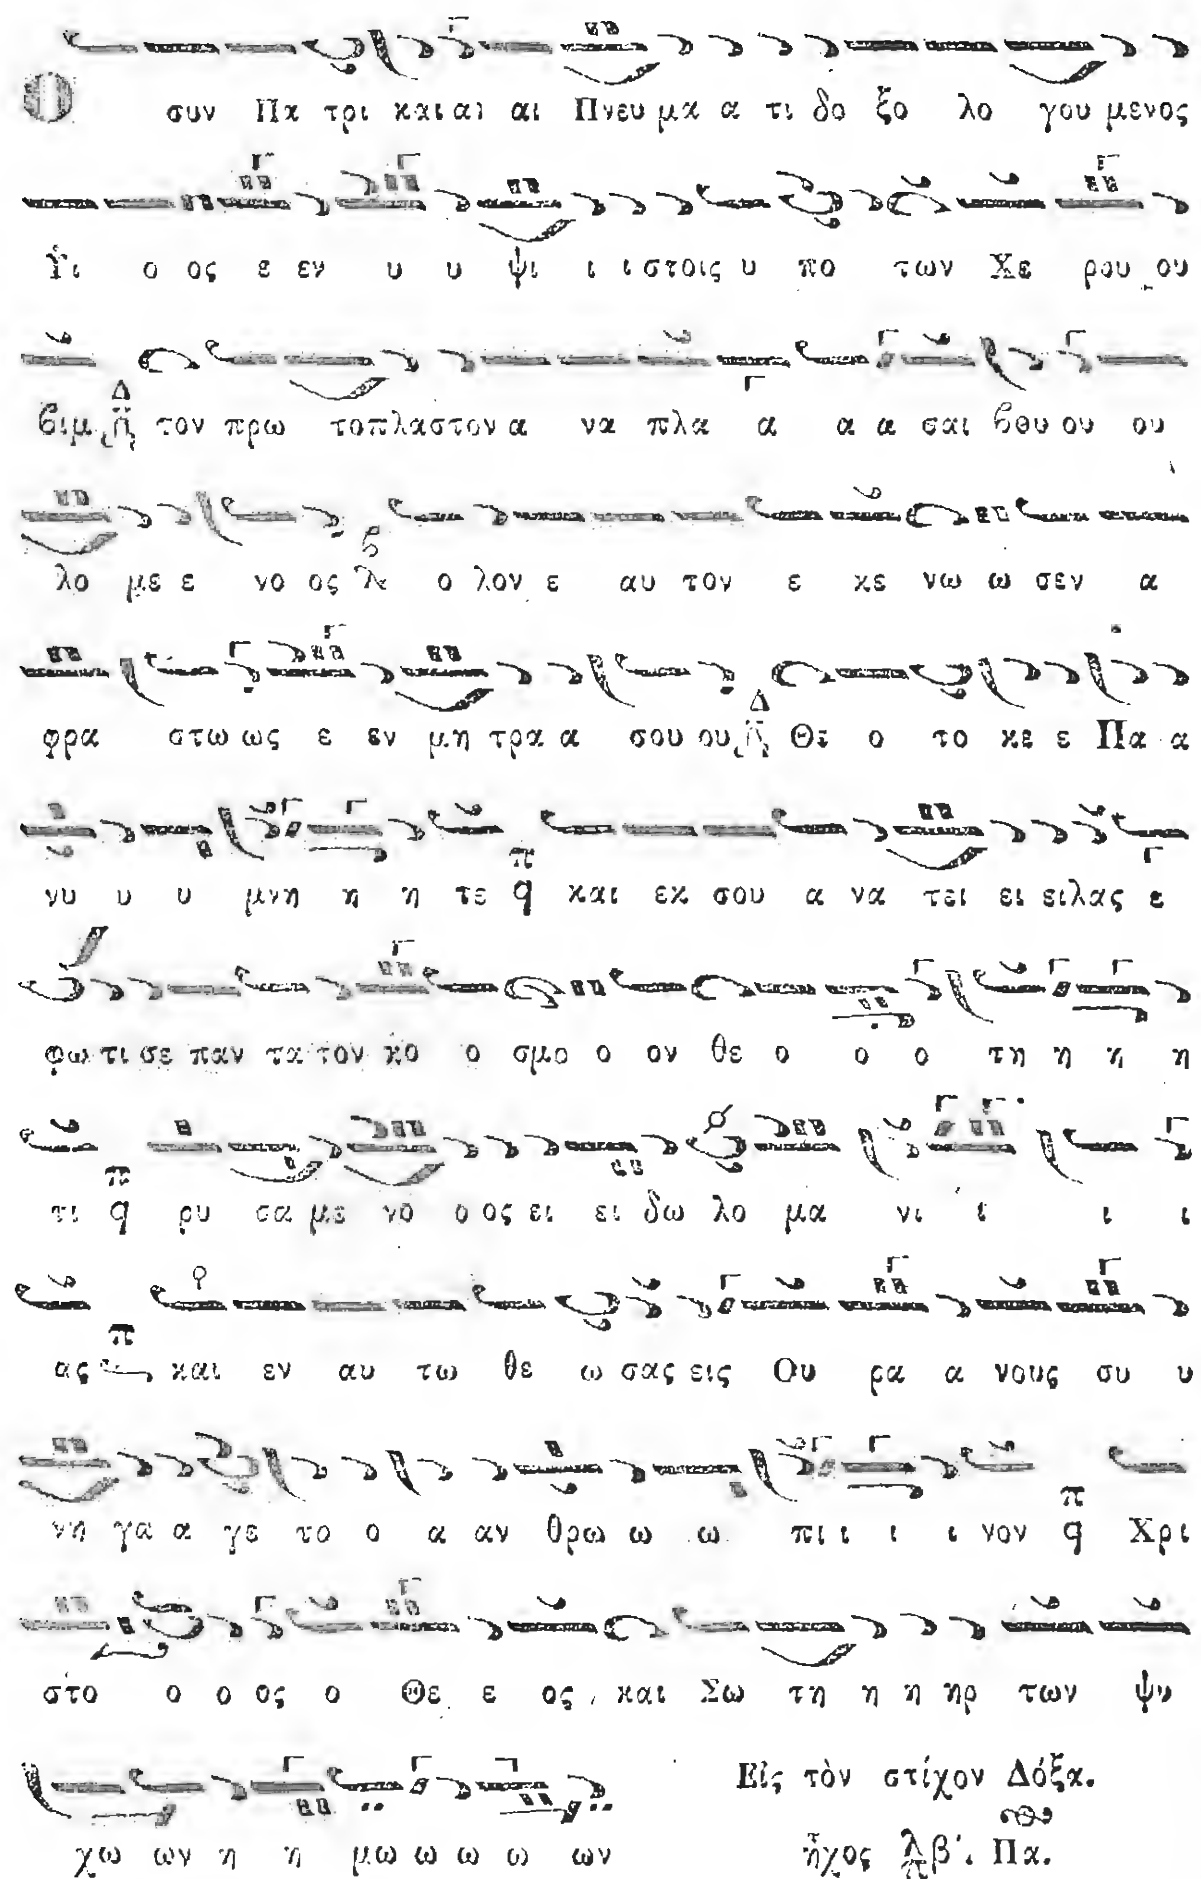 Ο συν Πα τρι και αι αι Πνευ μα α τι δο ξο λο γου μενος
Υι ο ος ε εν υ υ ψι ι ι στοις υ πο των Χε ρου ου
βιμ Δ τον πρω τοπλαστον α να πλα α α α σαι βου ου ου
λο με ε νο ος ολον ε αυ τον ε κε νω ω σεν α
φρα στω ως ε εν μη τρα α σου ου Δ Θε ο το κε ε Πα α
νυ υ υ μνη η η τε π q και εκ σου α να τει ει ειλας ε
φω τι σε παν τα τον κο ο σμο ο ον θε ο ο ο τη η η η
τι π q ρυ σα με νο ο ος ει ει δω λο μα νι ι ι ι
ας π και εν αυ τω θε ω σας εις Ου ρα α νους συ υ
νη γα α γε το ο α αν θρω ω ω πι ι ι ι νον π q Χρι
στο ο ο ος ο Θε ε ος, και Σω τη η η ηρ των ψυ
χω ων η η μω ω ω ω ων
Εἰς τὸν στίχον Δόξα.
ἦχος λ π β'. Πα.